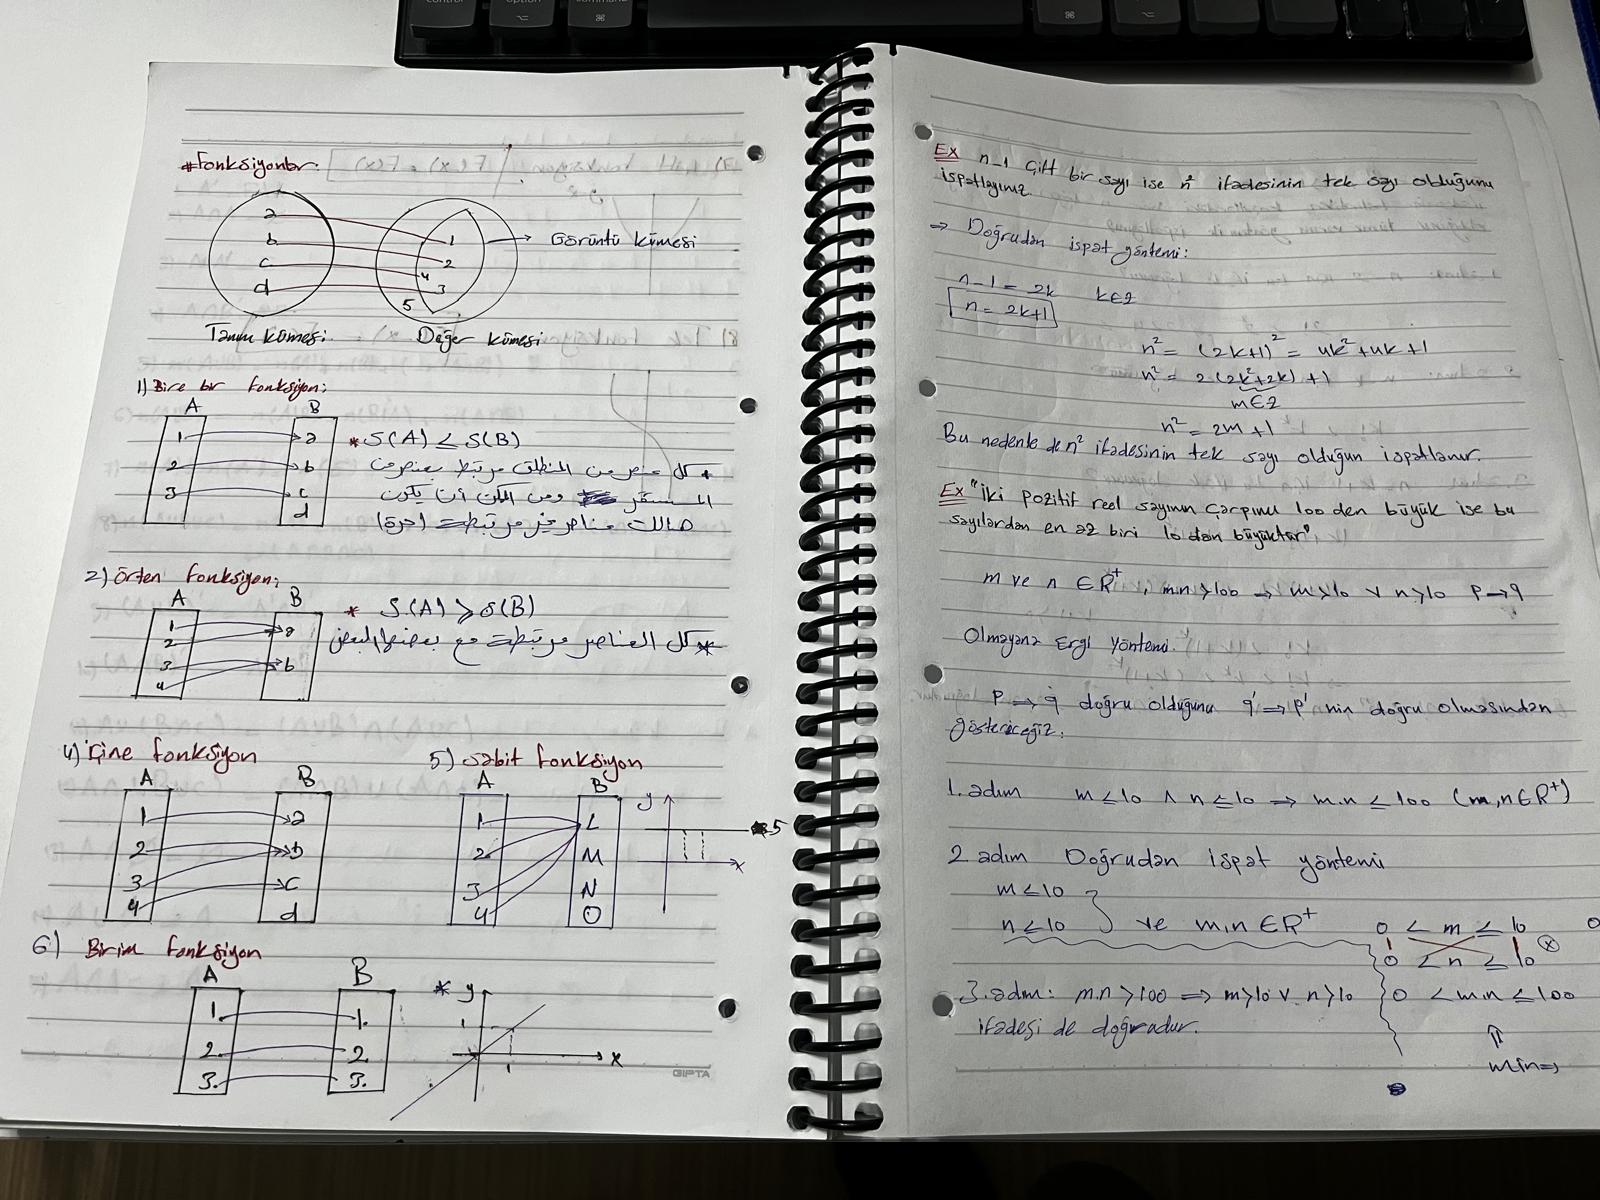 control option command ⌘ ⌥
#Fonksiyonlar:
a
b
c
d
1
2
4
3
5
→ Görüntü kümesi
Tanım kümesi Değer kümesi
1) Bire bir fonksiyon:
A B
1 a
2 b
3 c
d
* S(A) ≤ S(B)
* كل عنصر من المنطلق مرتبط بعنصر من
المستقر ومن الممكن أن يكون
هنالك عناصر غير مرتبطة (حرة)
2) Örten fonksiyon:
A B
1 a
2
3 b
4
* S(A) ≥ S(B)
* كل العناصر مرتبطة مع بعضها البعض
4) İçine fonksiyon
A B
1 a
2 b
3 c
4 d
5) Sabit fonksiyon
A B
1 L
2 M
3 N
4 O
y
5
x
6) Birim fonksiyon
A B
1. 1.
2. 2.
3. 3.
* y
1
1
x
GIPTA
Ex n-1 çift bir sayı ise n² ifadesinin tek sayı olduğunu
ispatlayınız
⇒ Doğrudan ispat yöntemi:
n-1 = 2k k∈Z
n = 2k+1
n² = (2k+1)² = 4k²+4k+1
n² = 2(2k²+2k)+1
m∈Z
n² = 2m+1
Bu nedenle de n² ifadesinin tek sayı olduğun ispatlanır.
Ex "İki pozitif reel sayının çarpımı 100 den büyük ise bu
sayılardan en az biri 10 dan büyüktür"
m ve n ∈ R⁺, m.n>100 ⇒ m>10 ∨ n>10 P→q
Olmayana Ergi Yöntemi.
P ⇒ q doğru olduğunu q' ⇒ p' nin doğru olmasından
göstereceğiz.
1. adım m≤10 ∧ n≤10 ⇒ m.n ≤ 100 (m,n∈R⁺)
2. adım Doğrudan ispat yöntemi
m≤10
n≤10 } ve m,n ∈R⁺
0 < m ≤ 10
0 < n ≤ 10 ⓧ
0 < m.n ≤ 100
3. adım: m.n >100 ⇒ m>10 ∨ n>10
ifadesi de doğrudur.
⇑
m.n⇒